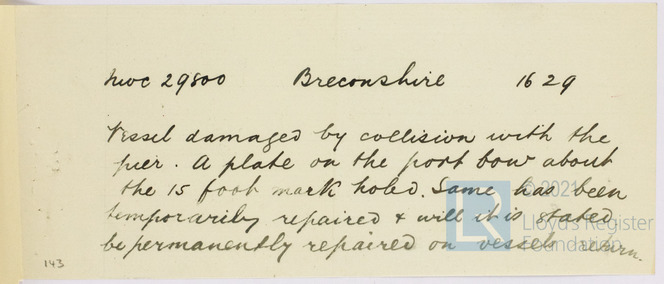 Nwc 29800 Breconshire 1629
Vessel damaged by collision with the
pier. A plate on the port bow about
the 15 foot mark holed. Same has been
temporarily repaired & will it is stated
be permanently repaired on vessels return.
© 2021
Lloyd's Register
Foundation
LR
143